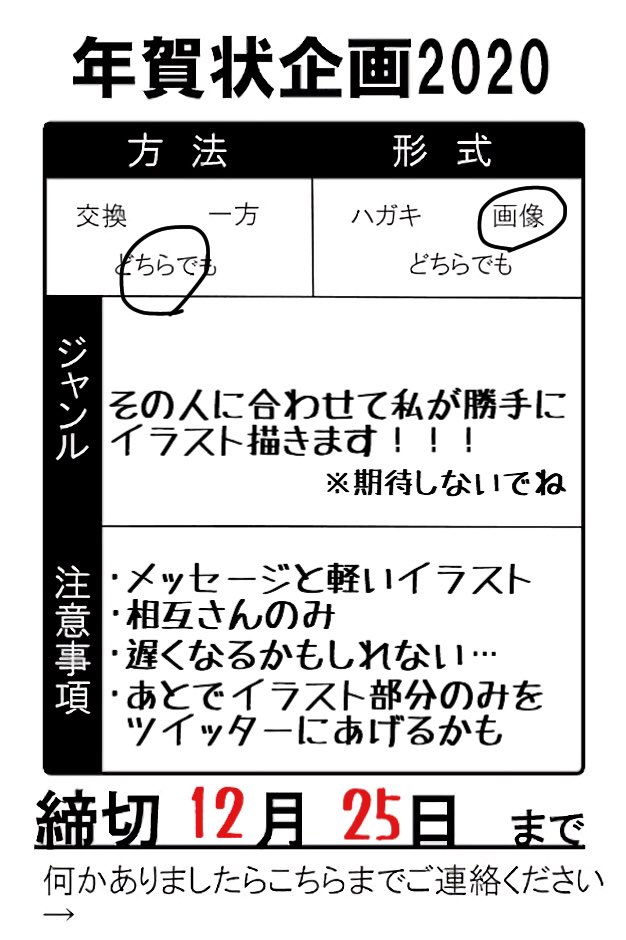 年賀状企画2020
方法 形式
交換 一方 ハガキ 画像
どちらでも どちらでも
ジャンル
その人に合わせて私が勝手に
イラスト描きます！！！
※期待しないでね
注意事項
・メッセージと軽いイラスト
・相互さんのみ
・遅くなるかもしれない…
・あとでイラスト部分のみを
ツイッターにあげるかも
締切 12月 25日 まで
何かありましたらこちらまでご連絡ください
→